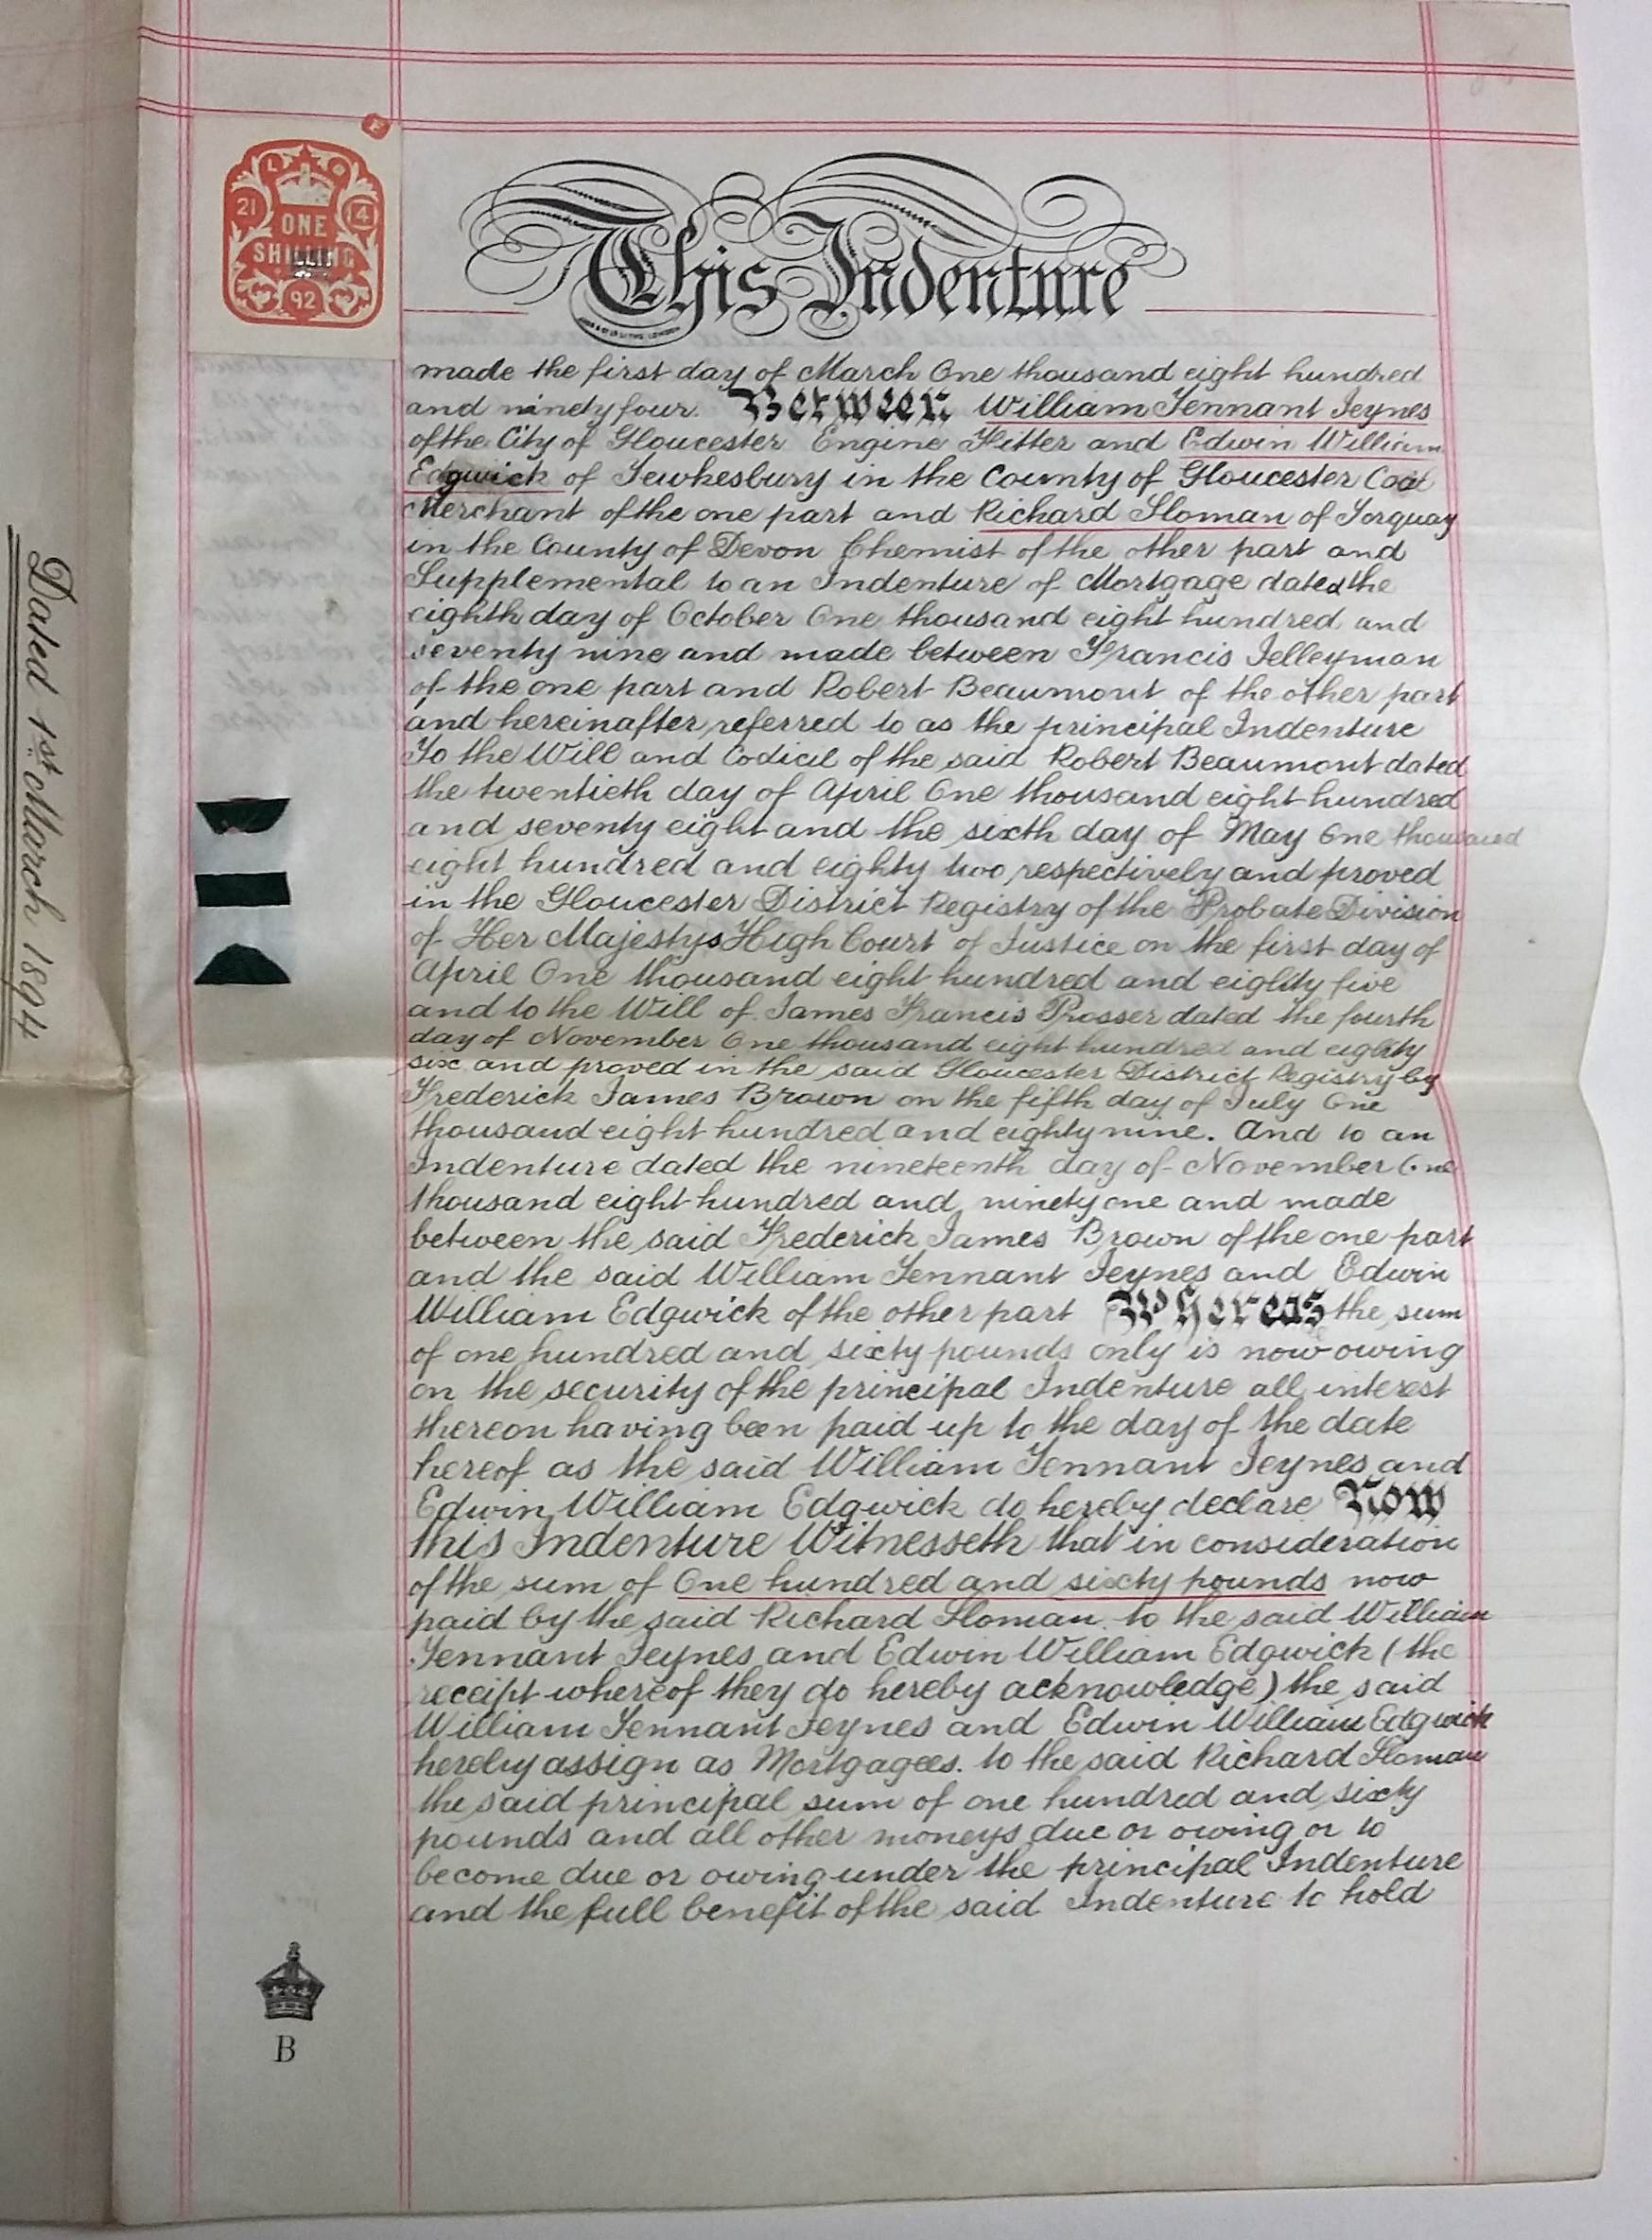 Dated 1st March 1894
L G
21 4
ONE
SHILLING
92
This Indenture
made the first day of March One thousand eight hundred
and ninety four. Between William Tennant Jeynes
of the City of Gloucester Engine Fitter and Edwin William
Edgwick of Tewkesbury in the County of Gloucester Coal
Merchant of the one part and Richard Sloman of Torquay
in the County of Devon Chemist of the other part and
Supplemental to an Indenture of Mortgage dated the
eighth day of October One thousand eight hundred and
seventy nine and made between Francis Jelleyman
of the one part and Robert Beaumont of the other part
and hereinafter referred to as the principal Indenture
To the Will and Codicil of the said Robert Beaumont dated
the twentieth day of April One thousand eight hundred
and seventy eight and the sixth day of May One thousand
eight hundred and eighty two respectively and proved
in the Gloucester District Registry of the Probate Division
of Her Majestys High Court of Justice on the first day of
April One thousand eight hundred and eighty five
and to the Will of James Francis Prosser dated the fourth
day of November One thousand eight hundred and eighty
six and proved in the said Gloucester District Registry by
Frederick James Brown on the fifth day of July One
thousand eight hundred and eighty nine. And to an
Indenture dated the nineteenth day of November One
thousand eight hundred and ninety one and made
between the said Frederick James Brown of the one part
and the said William Tennant Jeynes and Edwin
William Edgwick of the other part Whereas the sum
of one hundred and sixty pounds only is now owing
on the security of the principal Indenture all interest
thereon having been paid up to the day of the date
hereof as the said William Tennant Jeynes and
Edwin William Edgwick do hereby declare Now
this Indenture Witnesseth that in consideration
of the sum of One hundred and sixty pounds now
paid by the said Richard Sloman to the said William
Tennant Jeynes and Edwin William Edgwick (the
receipt whereof they do hereby acknowledge) the said
William Tennant Jeynes and Edwin William Edgwick
hereby assign as Mortgagees. to the said Richard Sloman
the said principal sum of one hundred and sixty
pounds and all other moneys due or owing or to
become due or owing under the principal Indenture
and the full benefit of the said Indenture to hold
B